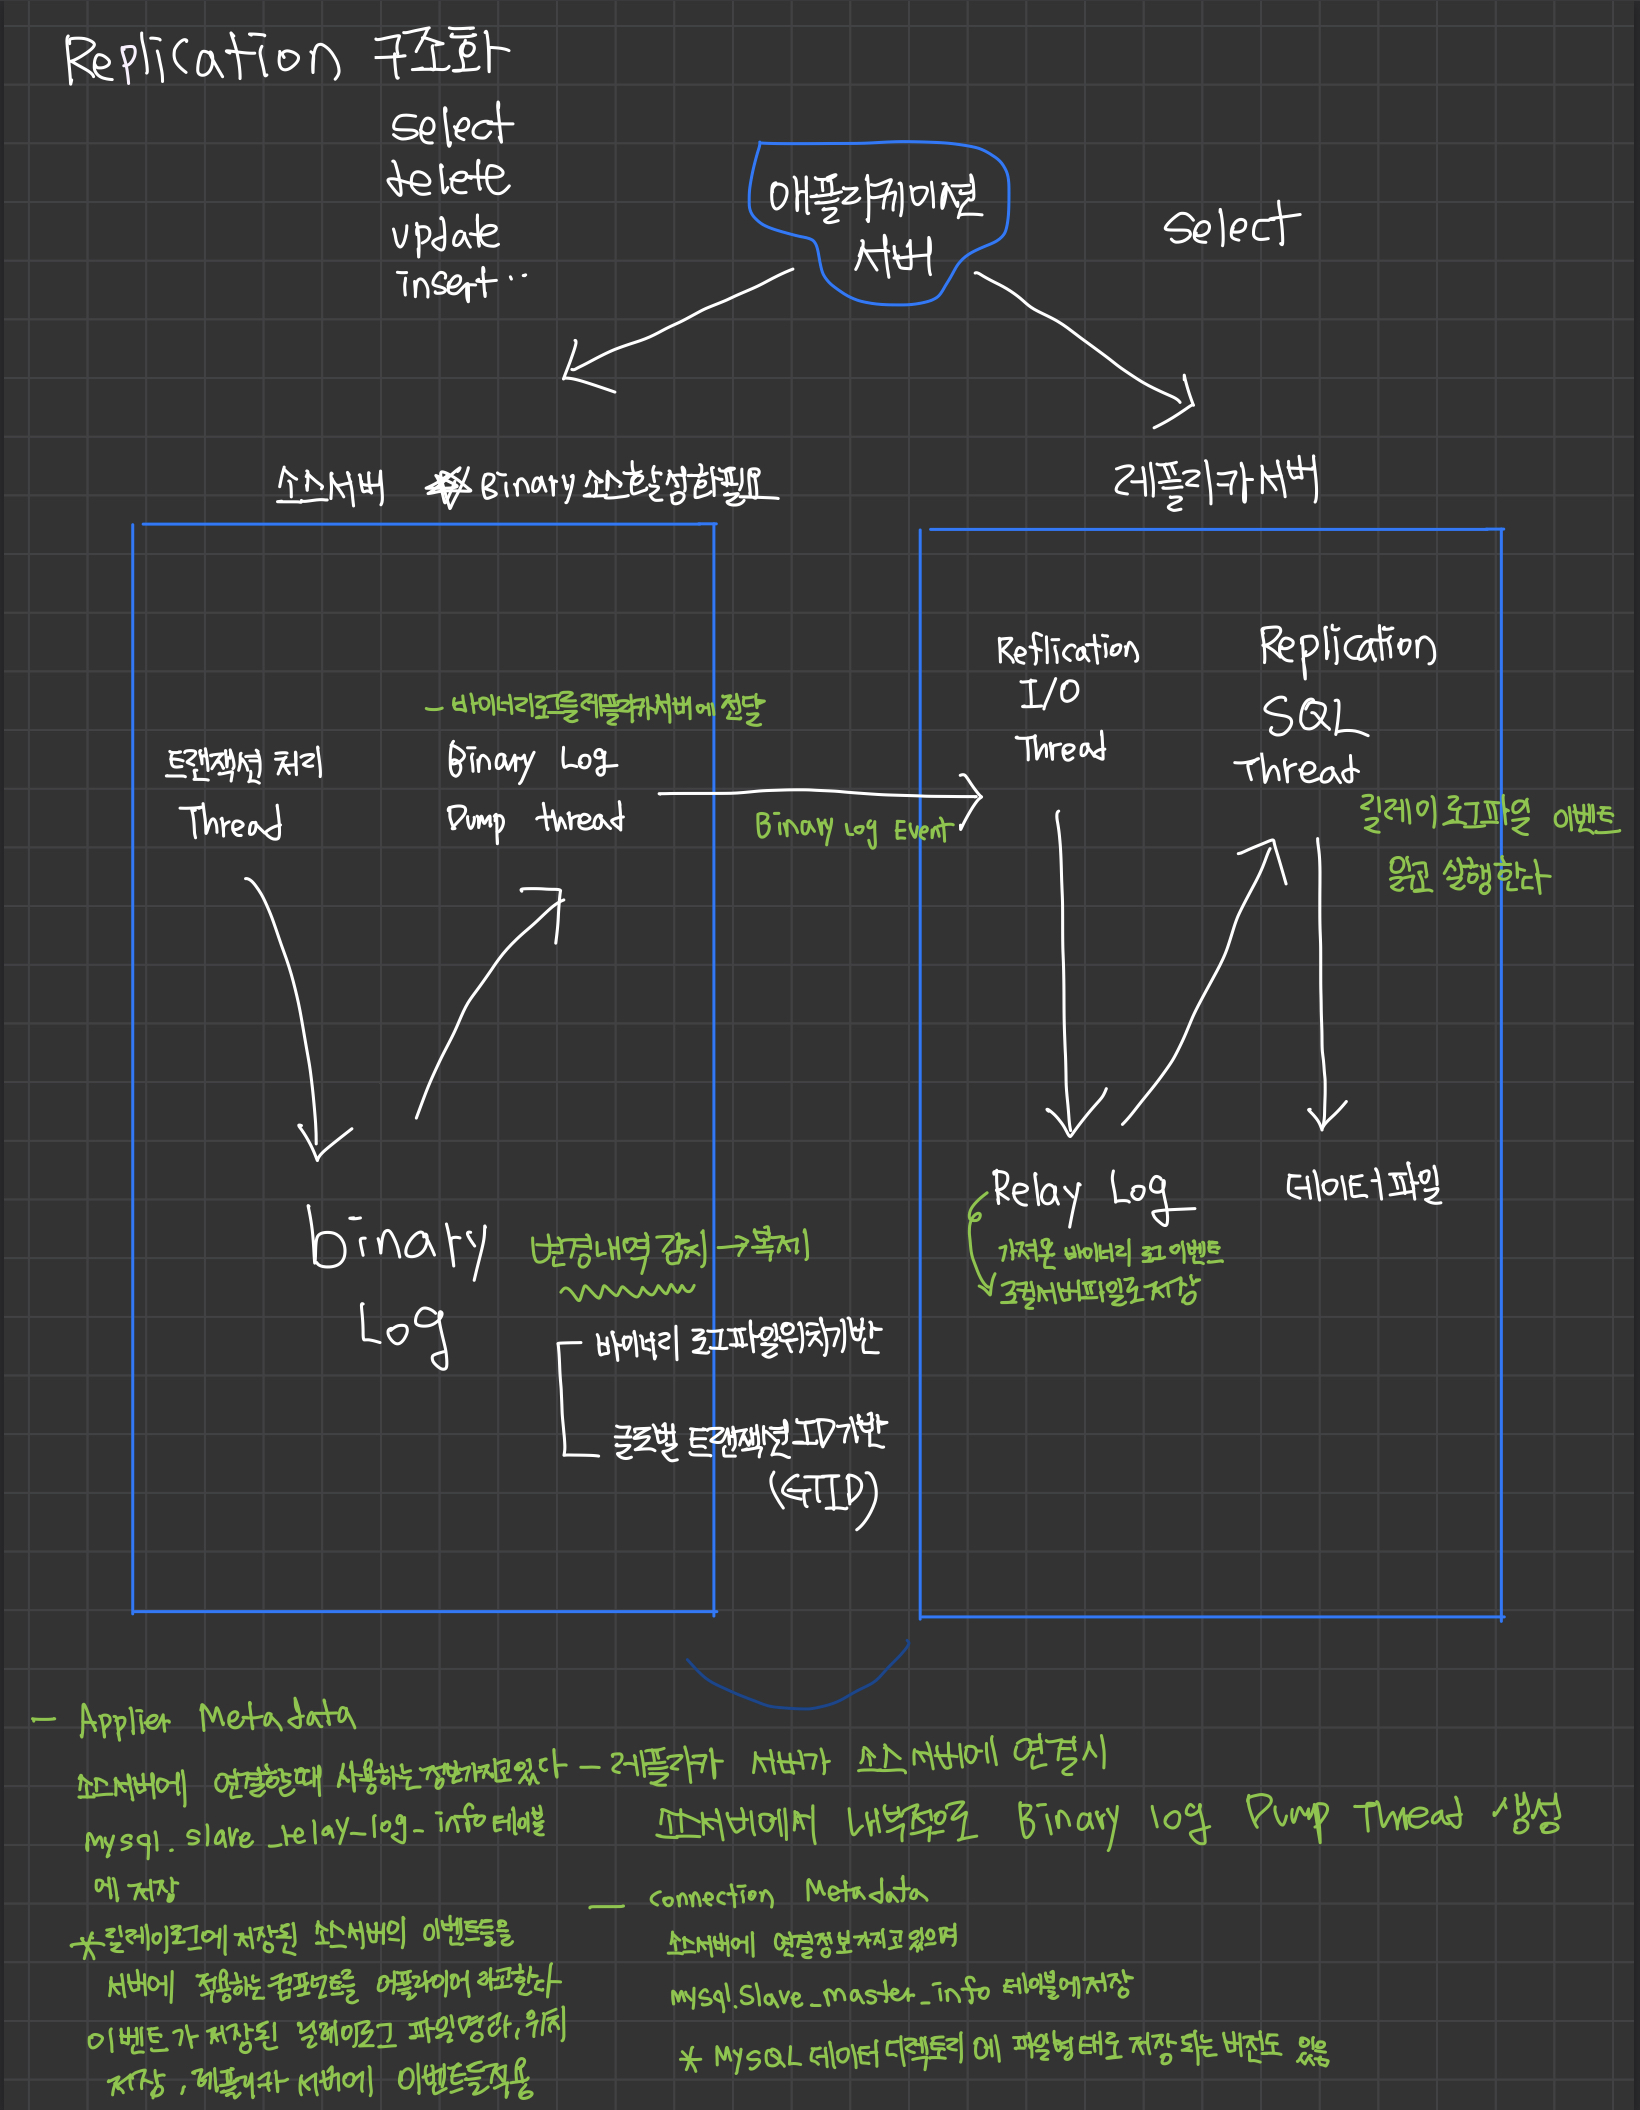 Replication 구조화
select
delete
update
insert..
애플리케이션
서버
select
소스서버 Binary 소스활성화필요
레플리카서버
- 바이너리로그를레플리카서버에 전달
트랜잭션 처리
Thread
Binary Log
Dump thread
Binary Log Event
binary
Log
변경내역 감지 → 복제
바이너리 로그파일위치기반
글로벌 트랜잭션 ID기반
(GTID)
Reflication
I/O
Thread
Replication
SQL
Thread
릴레이 로그파일 이벤트
읽고 실행한다
Relay Log
가져온 바이너리 로그 이벤트
로컬서버파일로저장
데이터파일
- Applier Metadata
소스서버에 연결할때 사용하는 정보가지고있다
Mysql. slave_relay_log_info 테이블
에 저장
* 릴레이로그에 저장된 소스서버의 이벤트들을
서버에 적용하는 컴포넌트를 어플라이어 라고한다
이벤트가 저장된 릴레이로그 파일명과, 위치
저장, 레플리카 서버에 이벤트들적용
- 레플리카 서버가 소스서버에 연결시
소스서버에서 내부적으로 Binary log Dump Thread 생성
- Connection Metadata
소스서버에 연결정보가지고 있으며
mysql.Slave_master_info 테이블에저장
* MySQL 데이터 디렉토리에 파일형태로 저장되는 버전도 있음